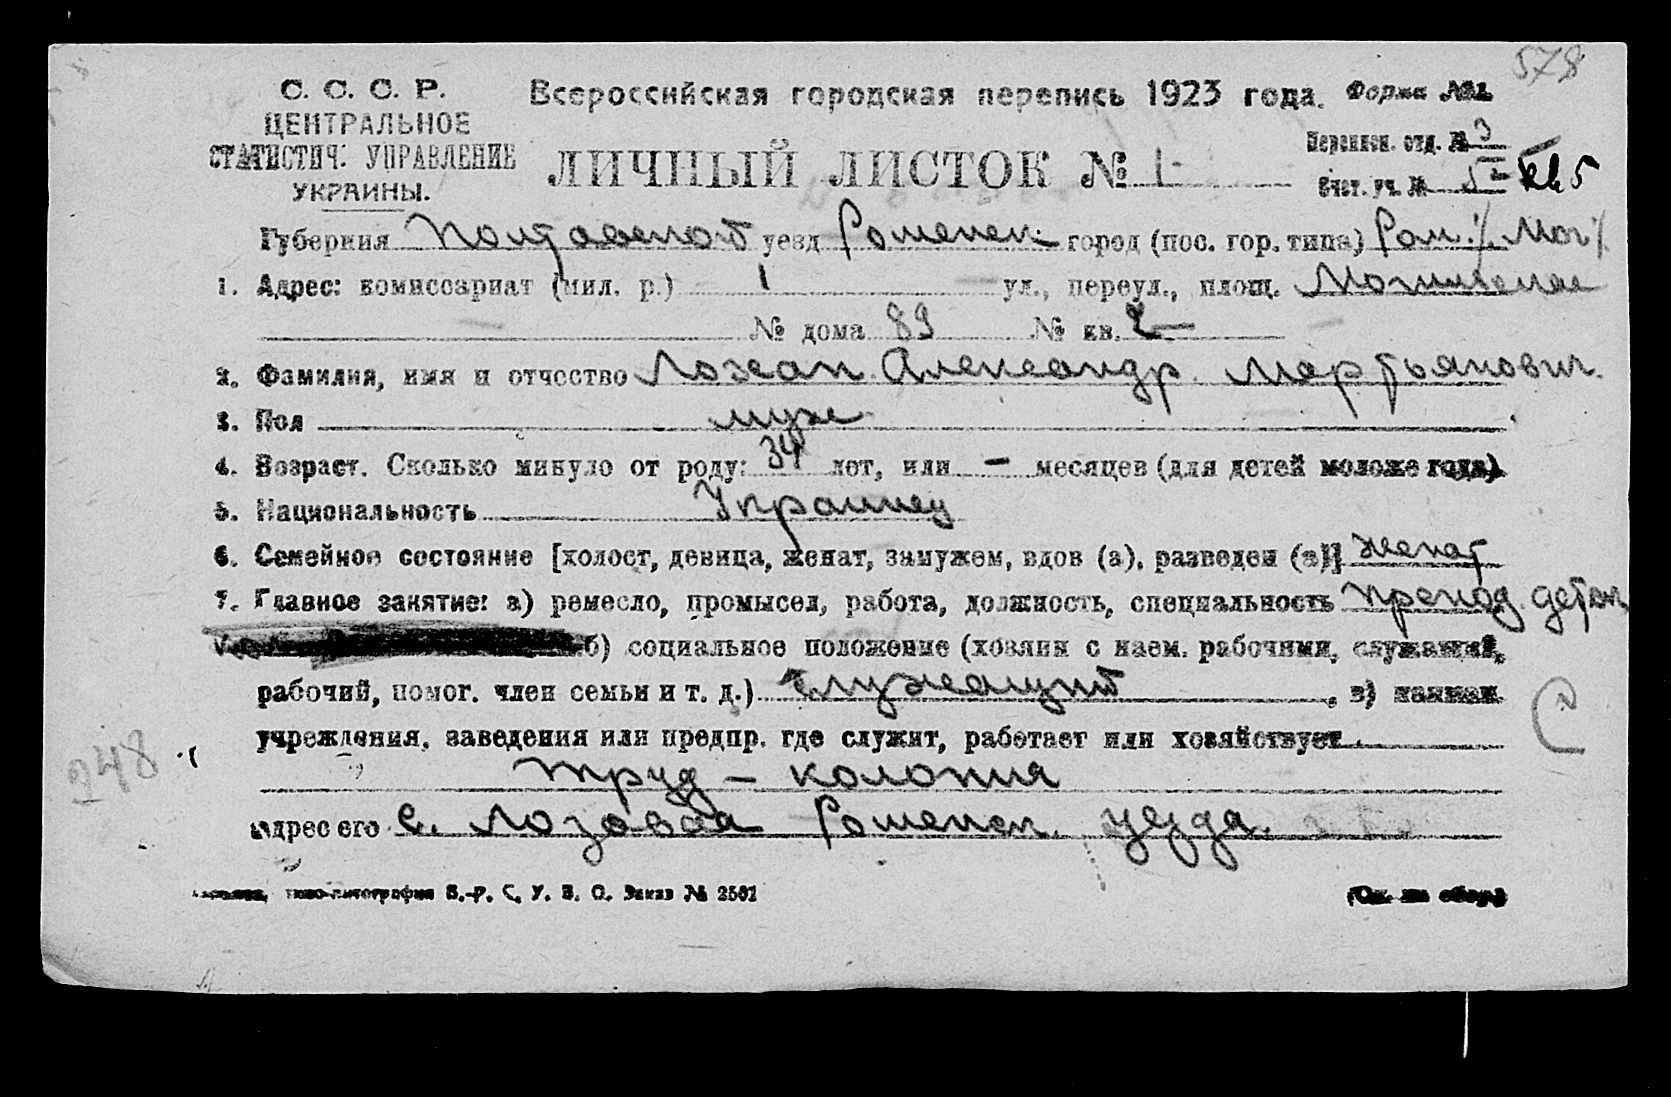 578
С. С. С. Р. Всероссийская городская перепись 1923 года. Форма №1
ЦЕНТРАЛЬНОЕ
СТАТИСТИЧ. УПРАВЛЕНИЕ
УКРАИНЫ.
ЛИЧНЫЙ ЛИСТОК № 1
Переписн. отд. № 3
Счет. уч. № 5 кв 5
Губерния Полтавской уезд Роменск. город (пос. гор. типа) Ром.
1. Адрес: комиссариат (мил. р.) 1 — ул., переул., площ.
— № дома 89 № кв. 2 —
2. Фамилия, имя и отчество Александр Мартьянович.
3. Пол муж
4. Возраст. Сколько минуло от роду: 34 лет, или — месяцев (для детей моложе года)
5. Национальность Украинец
6. Семейное состояние [холост, девица, женат, замужем, вдов (а), разведен (а)] женат
7. Главное занятие: а) ремесло, промысел, работа, должность, специальность препод. детск
б) социальное положение (хозяин с наем. рабочими, служащий,
рабочий, помог. член семьи и т. д.) Служащий, в) наимен.
учреждения, заведения или предпр. где служит, работает или хозяйствует
248
Труд - колония
адрес его с. Лозовая Роменск. уезда.
типо-литография В.-Р. С. У. В. О. Заказ № 2561
(См. на обор.)